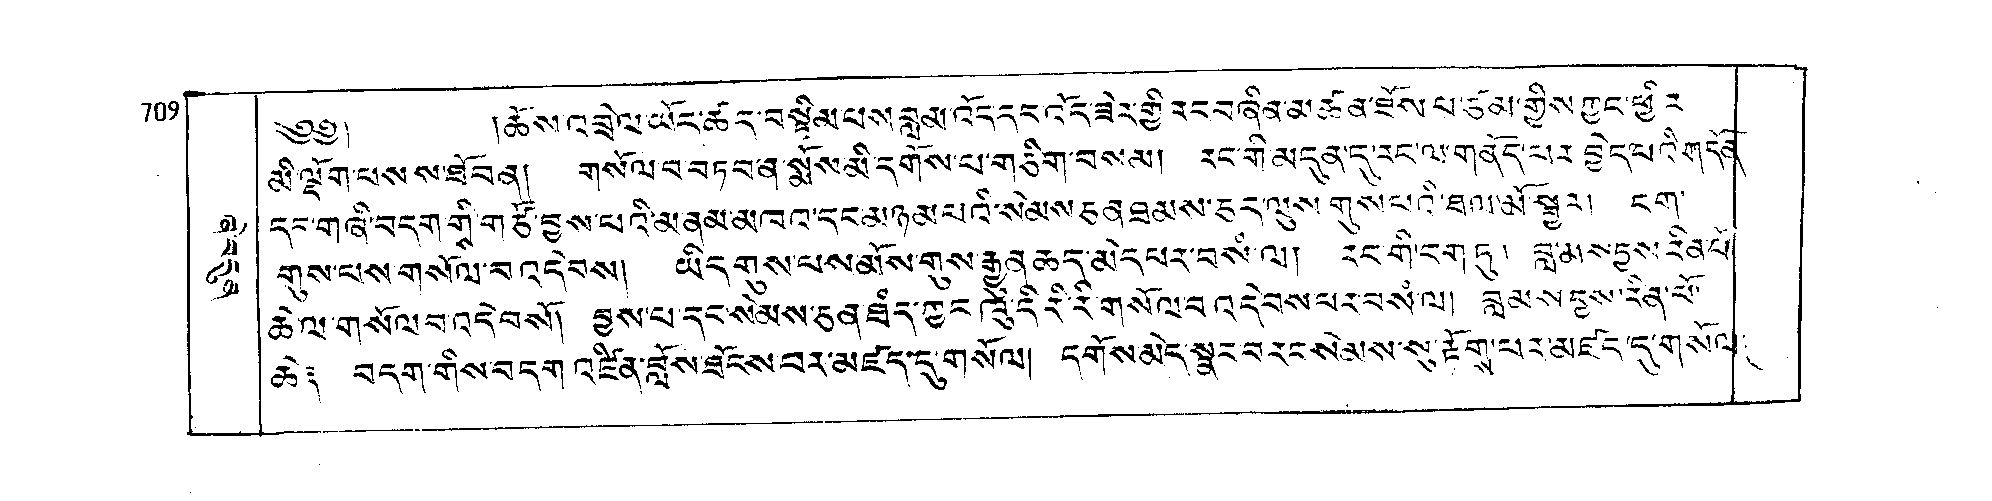 709
༄༅། །ཆོས་འབྲེལ་ཡོད་ཚད་བསྡོམ་པས་བླམ་འོད་དང་འོད་ཟེར་གྱི་རང་བཞིན་མ་ཚན་ཐོས་པ་ཙམ་གྱིས་ཀྱང་ཕྱིར
མི་ལྡོག་པས་ས་ཐོབ་ན། གསོལ་བ་བཏབ་ན་སྨོས་མི་དགོས་པ་གཅིག་བསམ། རང་གི་མདུན་དུ་རང་ལ་གནོད་པར་བྱེད་པའི་གདོན
དང་གཞི་བདག་གྲི་གཙོ་བྱས་པའི་མནམ་མཁའ་དང་མཉམ་པའི་སེམས་ཅན་ཐམས་ཅད་ལུས་གུས་པའི་ཐལ་མོ་སྦྱར། ངག་
གུས་པས་གསོལ་བ་འདེབས། ཡིད་གུས་པས་མོས་གུས་རྒྱུན་ཆད་མེད་པར་བསམ་ལ། རང་གི་ངག་ཏུ། བླ་མ་སངྱས་རིན་པོ
ཆེ་ལ་གསོལ་བ་འདེབསོ། བྱས་པ་དང་སེམས་ཅན་ཐཾད་ཀྱང་ དི་རི་རི་གསོལ་བ་འདེབས་པར་བསཾ་ལ། བླམ་སངྱས་རིན་པོ་
ཆེ༔ བདག་གིས་བདག་འཛིན་བློས་ཐོངས་བར་མཛད་དུ་གསོལ། དགོས་མེད་སྣང་བ་རང་སེམས་སུ་རྟོགས་པར་མཛད་དུ་གསོལ